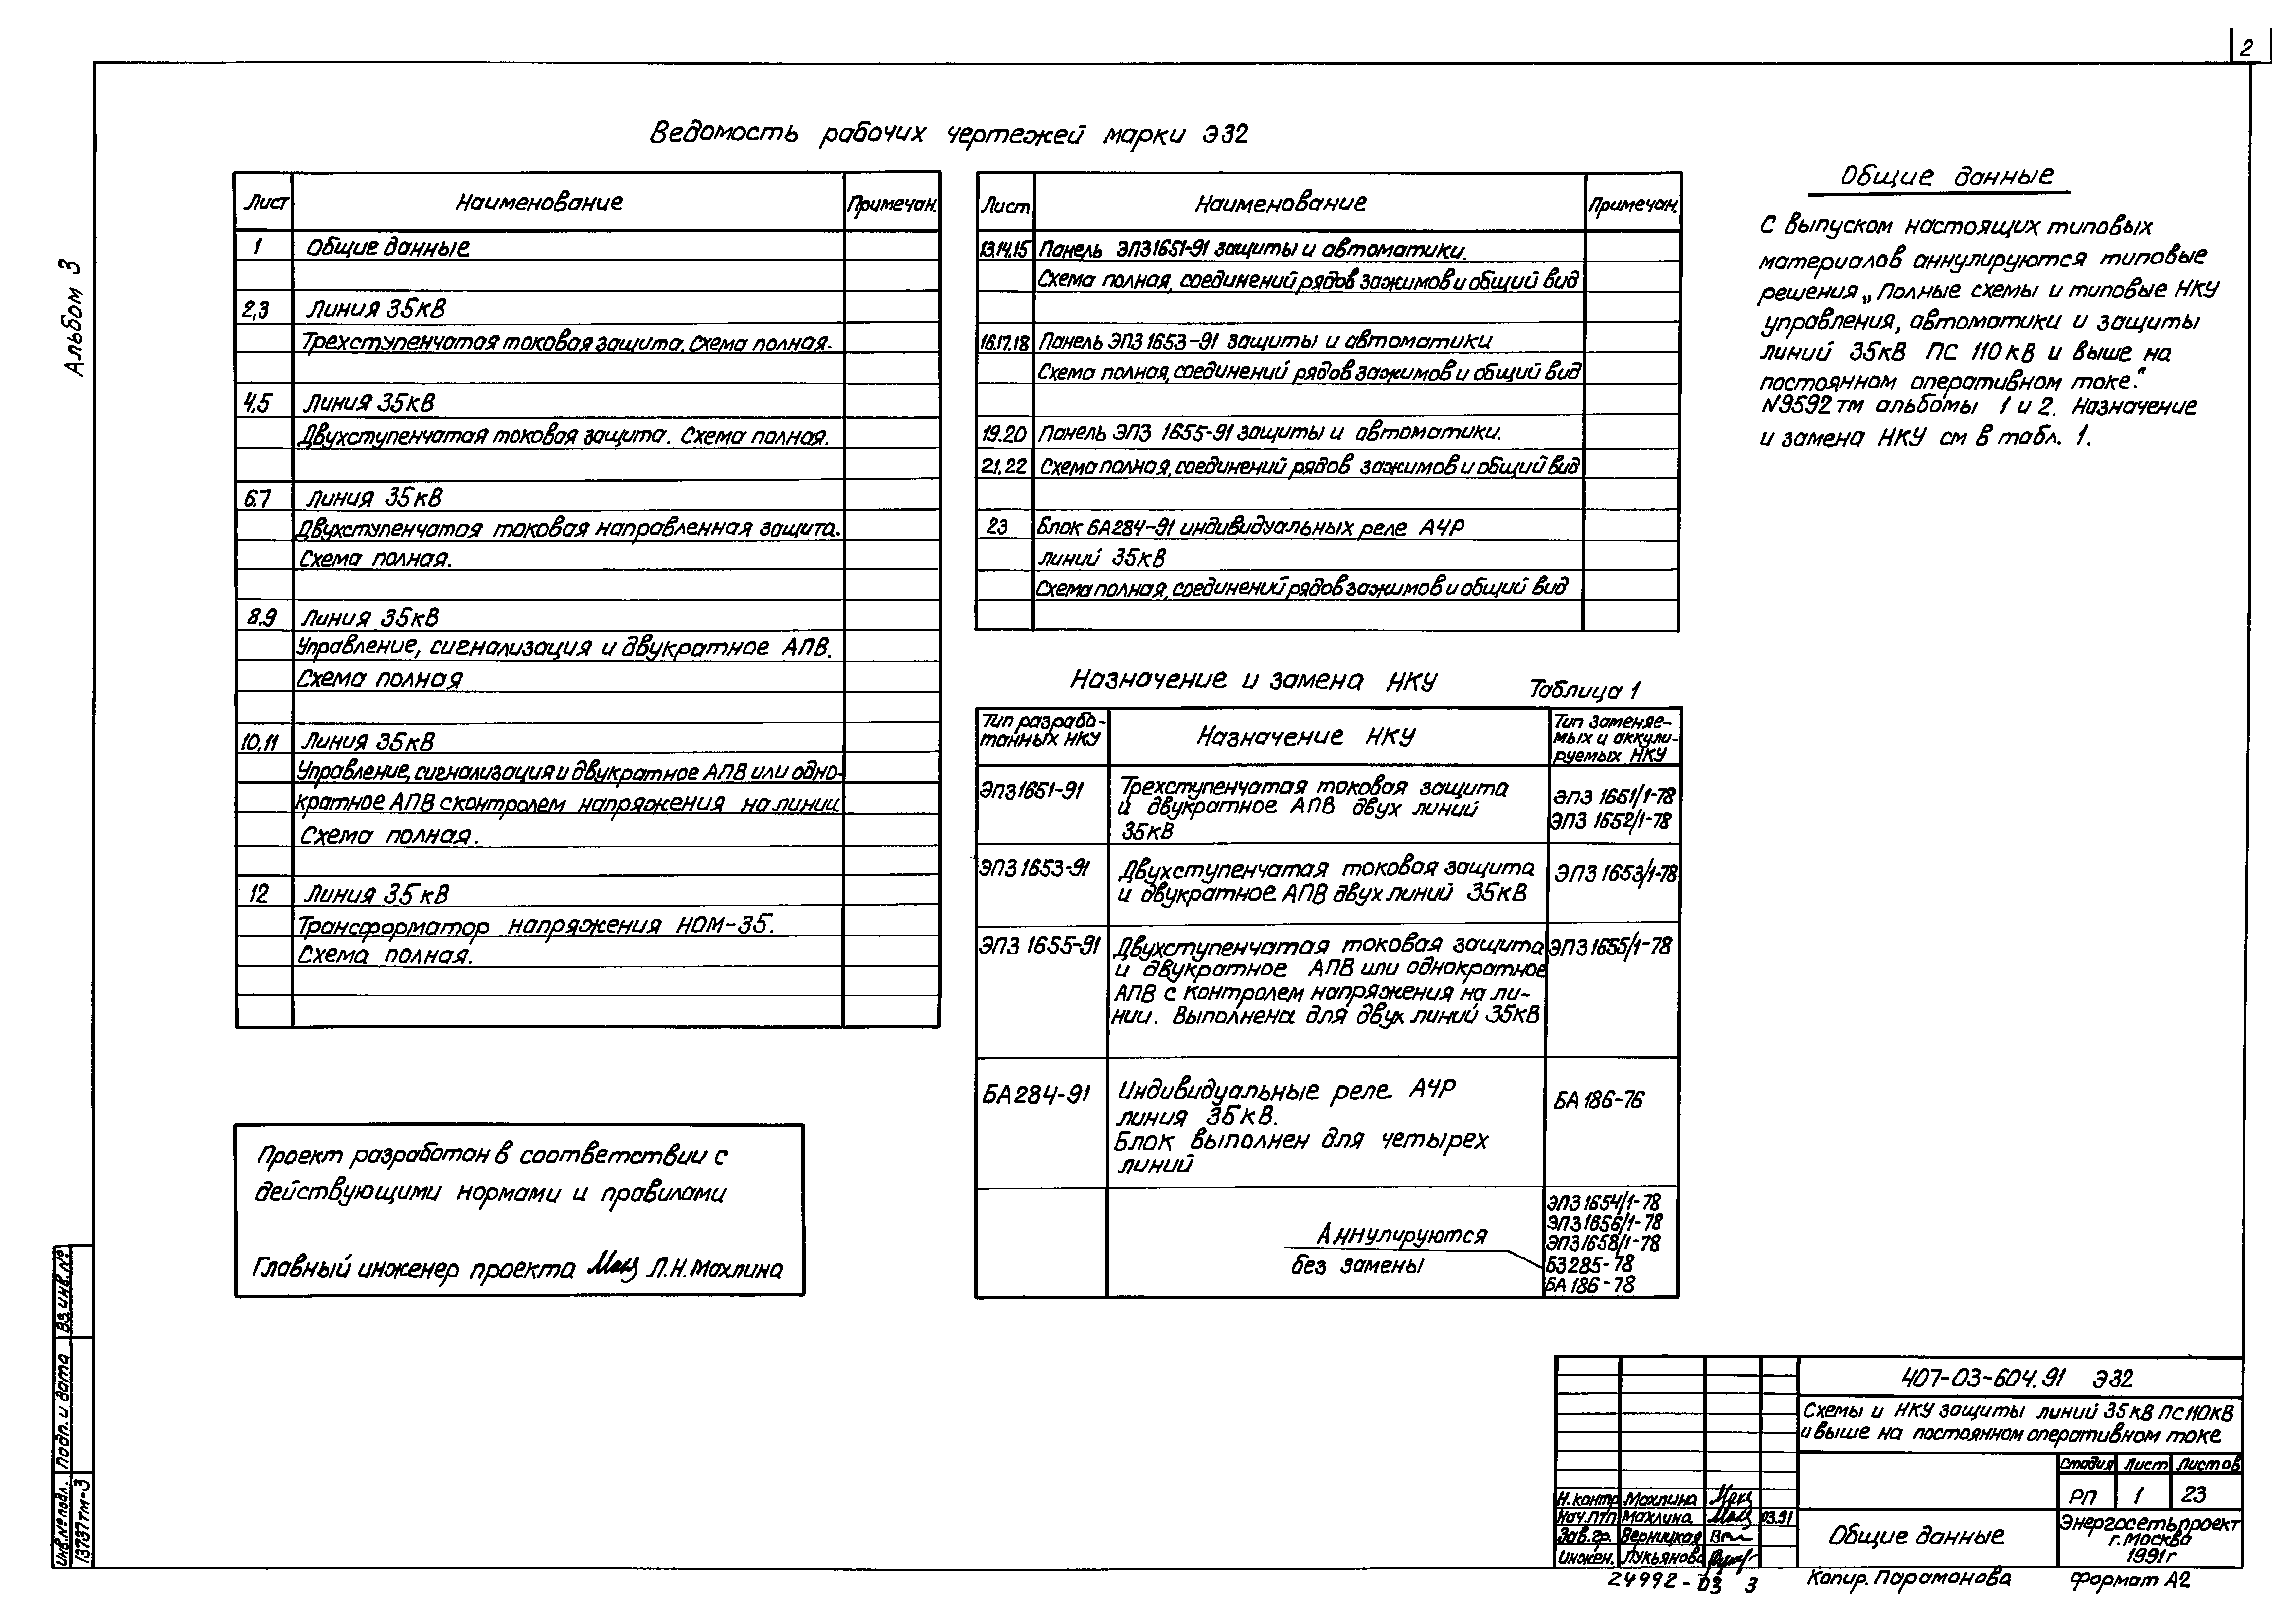 2
Альбом 3
Ведомость рабочих чертежей марки ЭЗ2
Лист Наименование Примечан.
1 Общие данные
2,3 Линия 35кВ
Трехступенчатая токовая защита. Схема полная.
4,5 Линия 35кВ
Двухступенчатая токовая защита. Схема полная.
6.7 Линия 35кВ
Двухступенчатая токовая направленная защита.
Схема полная.
8.9 Линия 35кВ
Управление, сигнализация и двукратное АПВ.
Схема полная
10,11 Линия 35кВ
Управление, сигнализация и двукратное АПВ или одно-
кратное АПВ с контролем напряжения на линии
Схема полная.
12 Линия 35кВ
Трансформатор напряжения НОМ-35.
Схема полная.
Лист Наименование Примечан.
13.14.15 Панель ЭПЗ1651-91 защиты и автоматики.
Схема полная, соединений рядов зажимов и общий вид
16.17.18 Панель ЭПЗ 1653-91 защиты и автоматики
Схема полная, соединений рядов зажимов и общий вид
19.20 Панель ЭПЗ 1655-91 защиты и автоматики.
21.22 Схема полная, соединений рядов зажимов и общий вид
23 Блок БА284-91 индивидуальных реле АЧР
линий 35кВ
Схема полная, соединений рядов зажимов и общий вид
Назначение и замена НКУ Таблица 1
Тип разрабо-
танных НКУ
Назначение НКУ
Тип заменяе-
мых и аккули-
руемых НКУ
ЭПЗ1651-91
Трехступенчатая токовая защита
и двукратное АПВ двух линий
35кВ
ЭПЗ 1651/1-78
ЭПЗ 1652/1-78
ЭПЗ 1653-91
Двухступенчатая токовая защита
и двукратное АПВ двух линий 35кВ
ЭПЗ 1653/1-78
ЭПЗ 1655-91
Двухступенчатая токовая защита
и двукратное АПВ или однократное
АПВ с контролем напряжения на ли-
нии. Выполнена для двух линий 35кВ
ЭПЗ 1655/1-78
БА284-91
Индивидуальные реле АЧР
линия 35кВ.
Блок выполнен для четырех
линий
БА 186-76
Аннулируются
без замены
ЭПЗ 1654/1-78
ЭПЗ 1656/1-78
ЭПЗ 1658/1-78
БЗ285-78
БА 186-78
Общие данные
С выпуском настоящих типовых
материалов аннулируются типовые
решения „Полные схемы и типовые НКУ
управления, автоматики и защиты
линий 35кВ ПС 110кВ и выше на
постоянном оперативном токе."
N9592тм альбомы 1 и 2. Назначение
и замена НКУ см в табл. 1.
Проект разработан в соответствии с
действующими нормами и правилами
Главный инженер проекта Л.Н.Махлина
Инв.№подл. Подп. и дата Вз инв. №
13737тм-3
407-03-604.91 ЭЗ2
Схемы и НКУ защиты линий 35кВ ПС110кВ
и выше на постоянном оперативном токе
Стадия Лист Листов
РП 1 23
Н.контр Махлина
Нач.ПТП Махлина 03.91
Зав.гр. Верницкая
Инжен. Лукьянова
Общие данные
Энергосетьпроект
г.Москва
1991г
24992-03 3
Копир. Парамонова
Формат А2